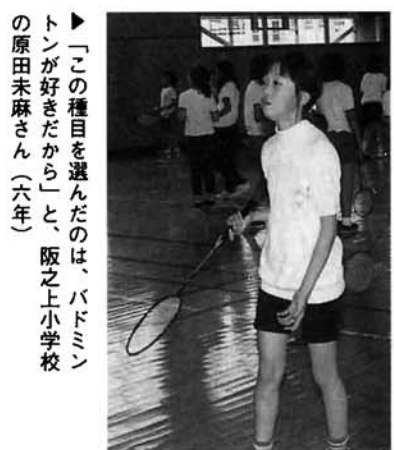 ▶「この種目を選んだのは、バドミン
トンが好きだから」と、阪之上小学校
の原田未麻さん（六年）